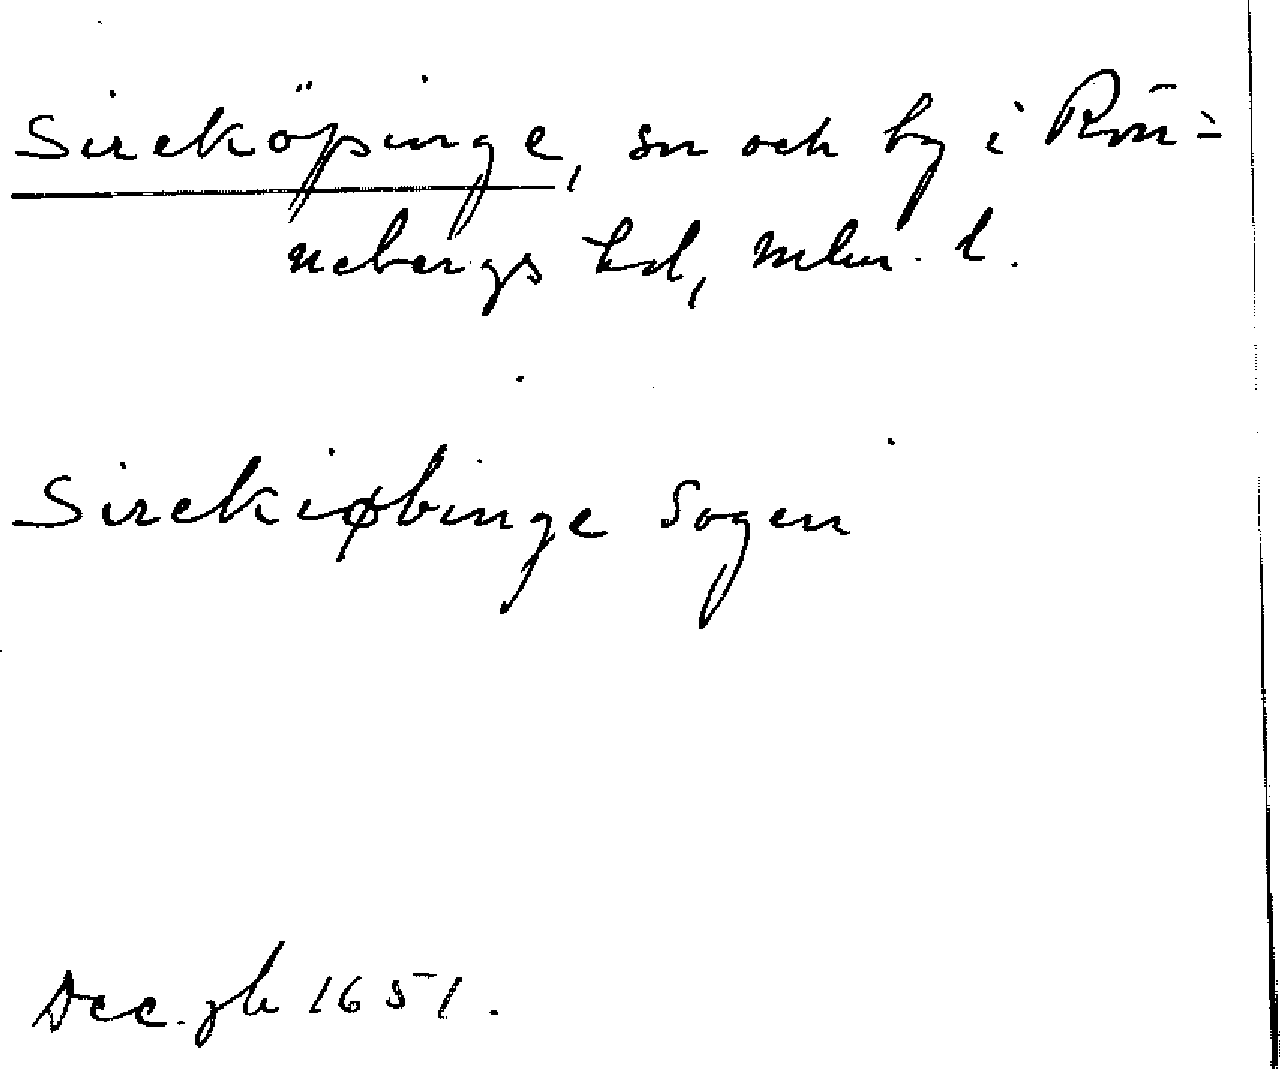 Sireköpinge, sn och by i Rön-
nebergs hd, mlm. l.
Sirekiøbinge Sogen
Dec. jb 1651.